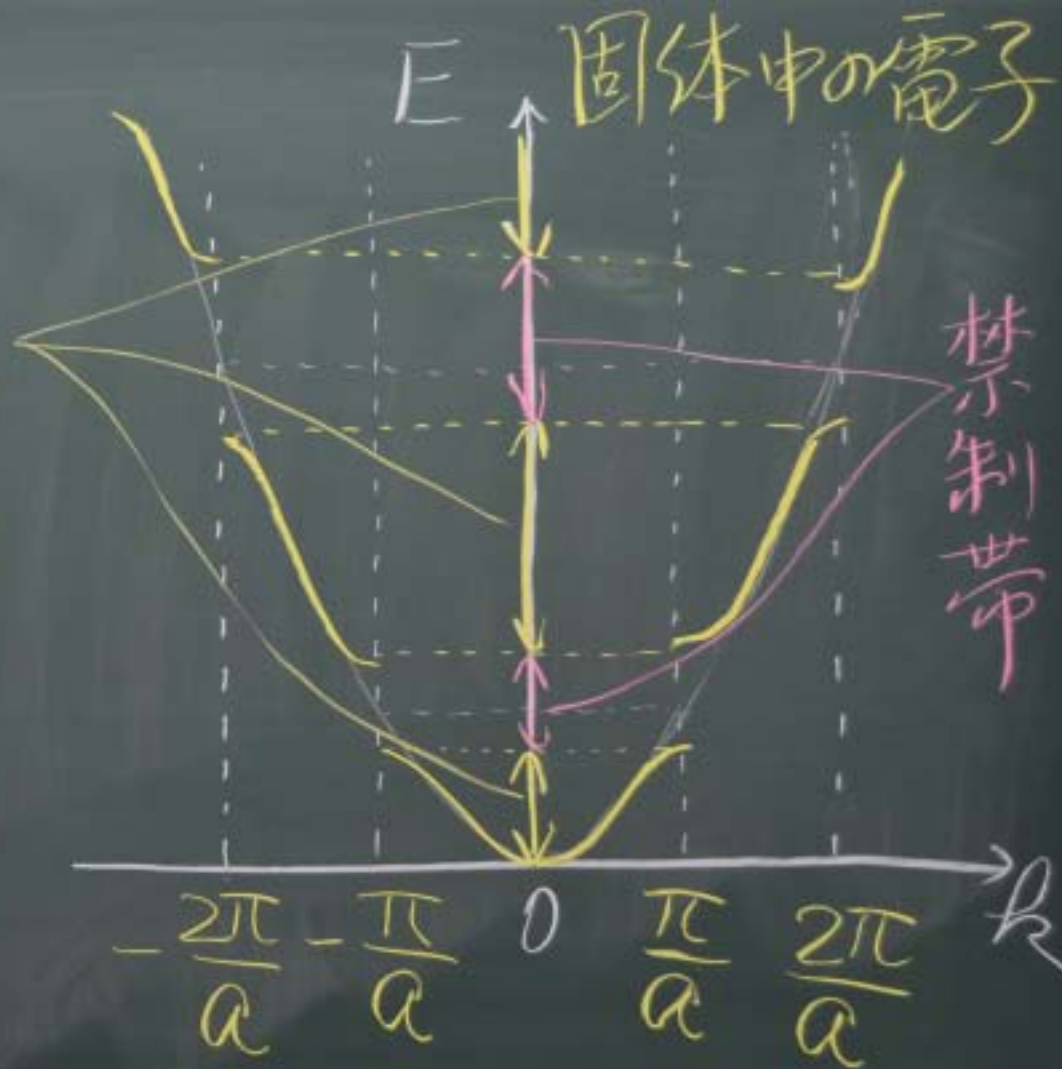 E 固体中の電子
禁制帯
-2π/a -π/a 0 π/a 2π/a k